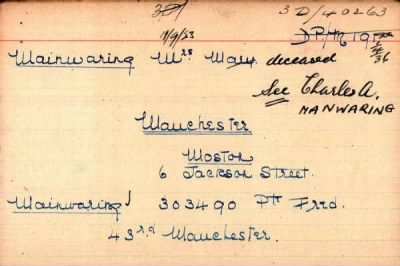 3 D/40263
11/9/23
Mainwaring Mrs Mary deceased
See Charles A.
MANWARING
Manchester
Moston
6 Jackson Street.
Mainwaring 303490 Pte Fred.
43rd Manchester.